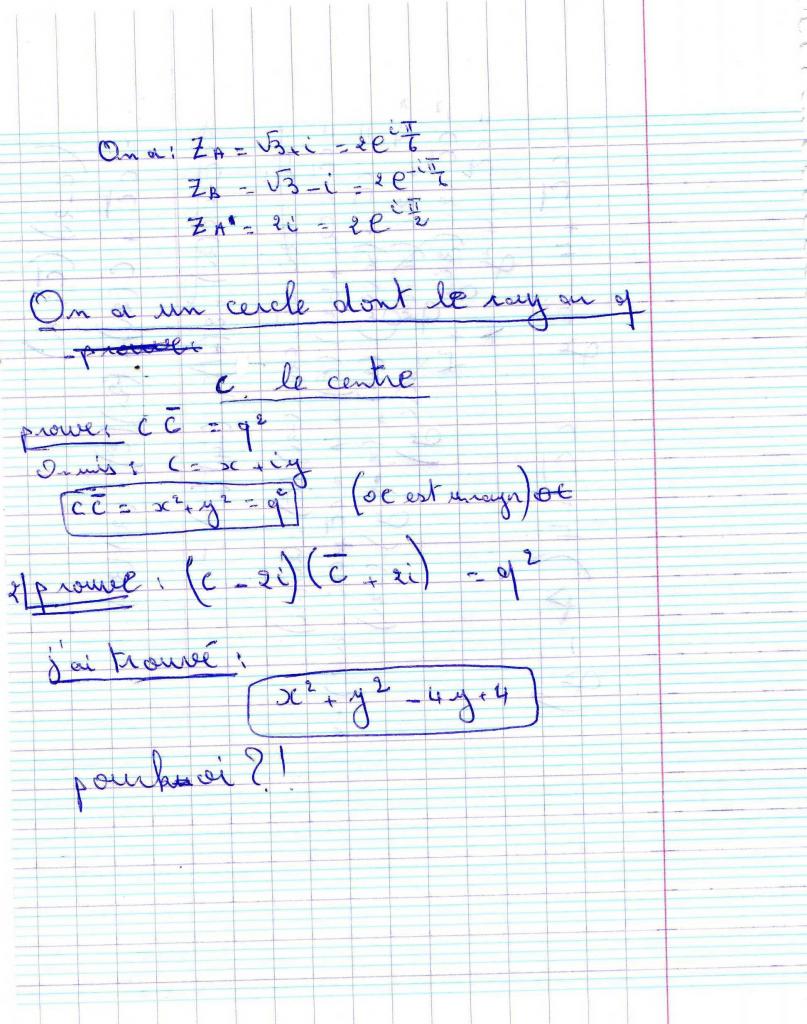 On a : Z_A = √3 + i = 2e^{iπ/6}
Z_B = √3 - i = 2e^{-iπ/6}
Z_A' = 2i = 2e^{iπ/2}
On a un cercle dont le rayon r
- prouve :
C le centre
prouve : C C̄ = r²
On mis : C = x + iy
C C̄ = x² + y² = r² (OC est un rayn) OC
2/ prouve : (C - 2i)(C̄ + 2i) = r²
j'ai trouvé :
x² + y² - 4y + 4
pourkoi ?!